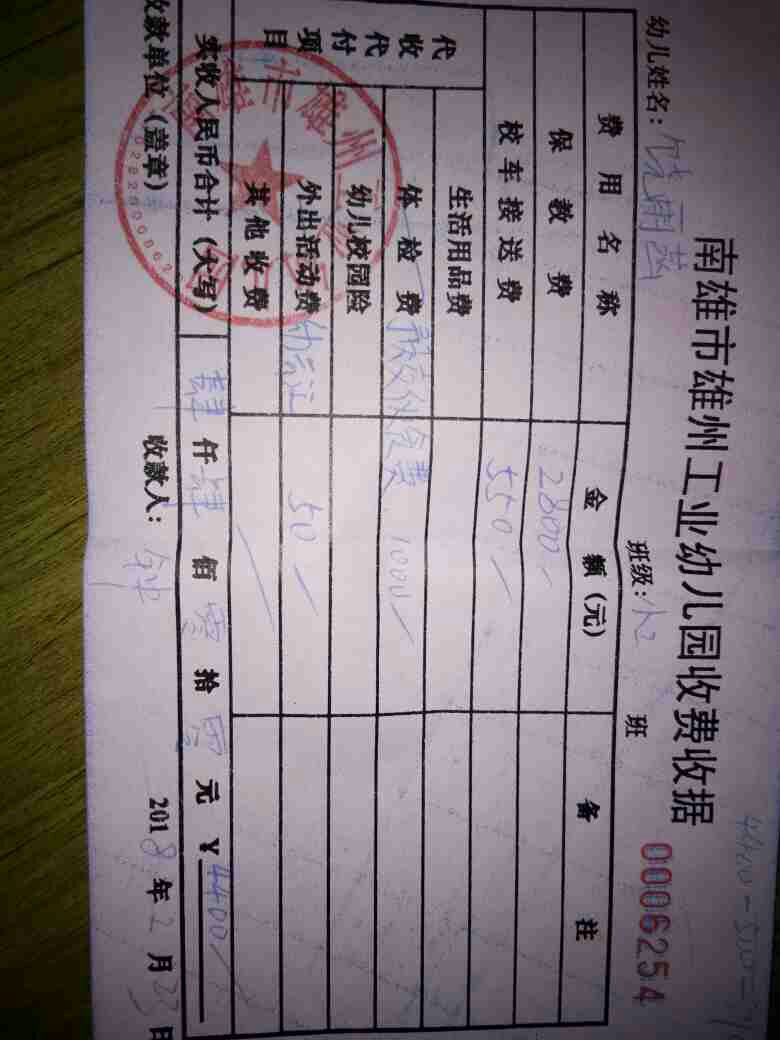 南雄市雄州工业幼儿园收费收据
4400-500=
幼儿姓名：饶雨菡 班级：小2 班 0006254
费用名称 金额（元） 备注
保教费 2800
校车接送费 550
代收代付项目
生活用品费
体检费 伙食费 1000
幼儿校园险
外出活动费 50
其他收费
实收人民币合计（大写） 肆 仟 肆 佰 零 拾 零 元 ¥ 4400
收款单位（盖章） 收款人：钟 2018 年 2 月 23 日